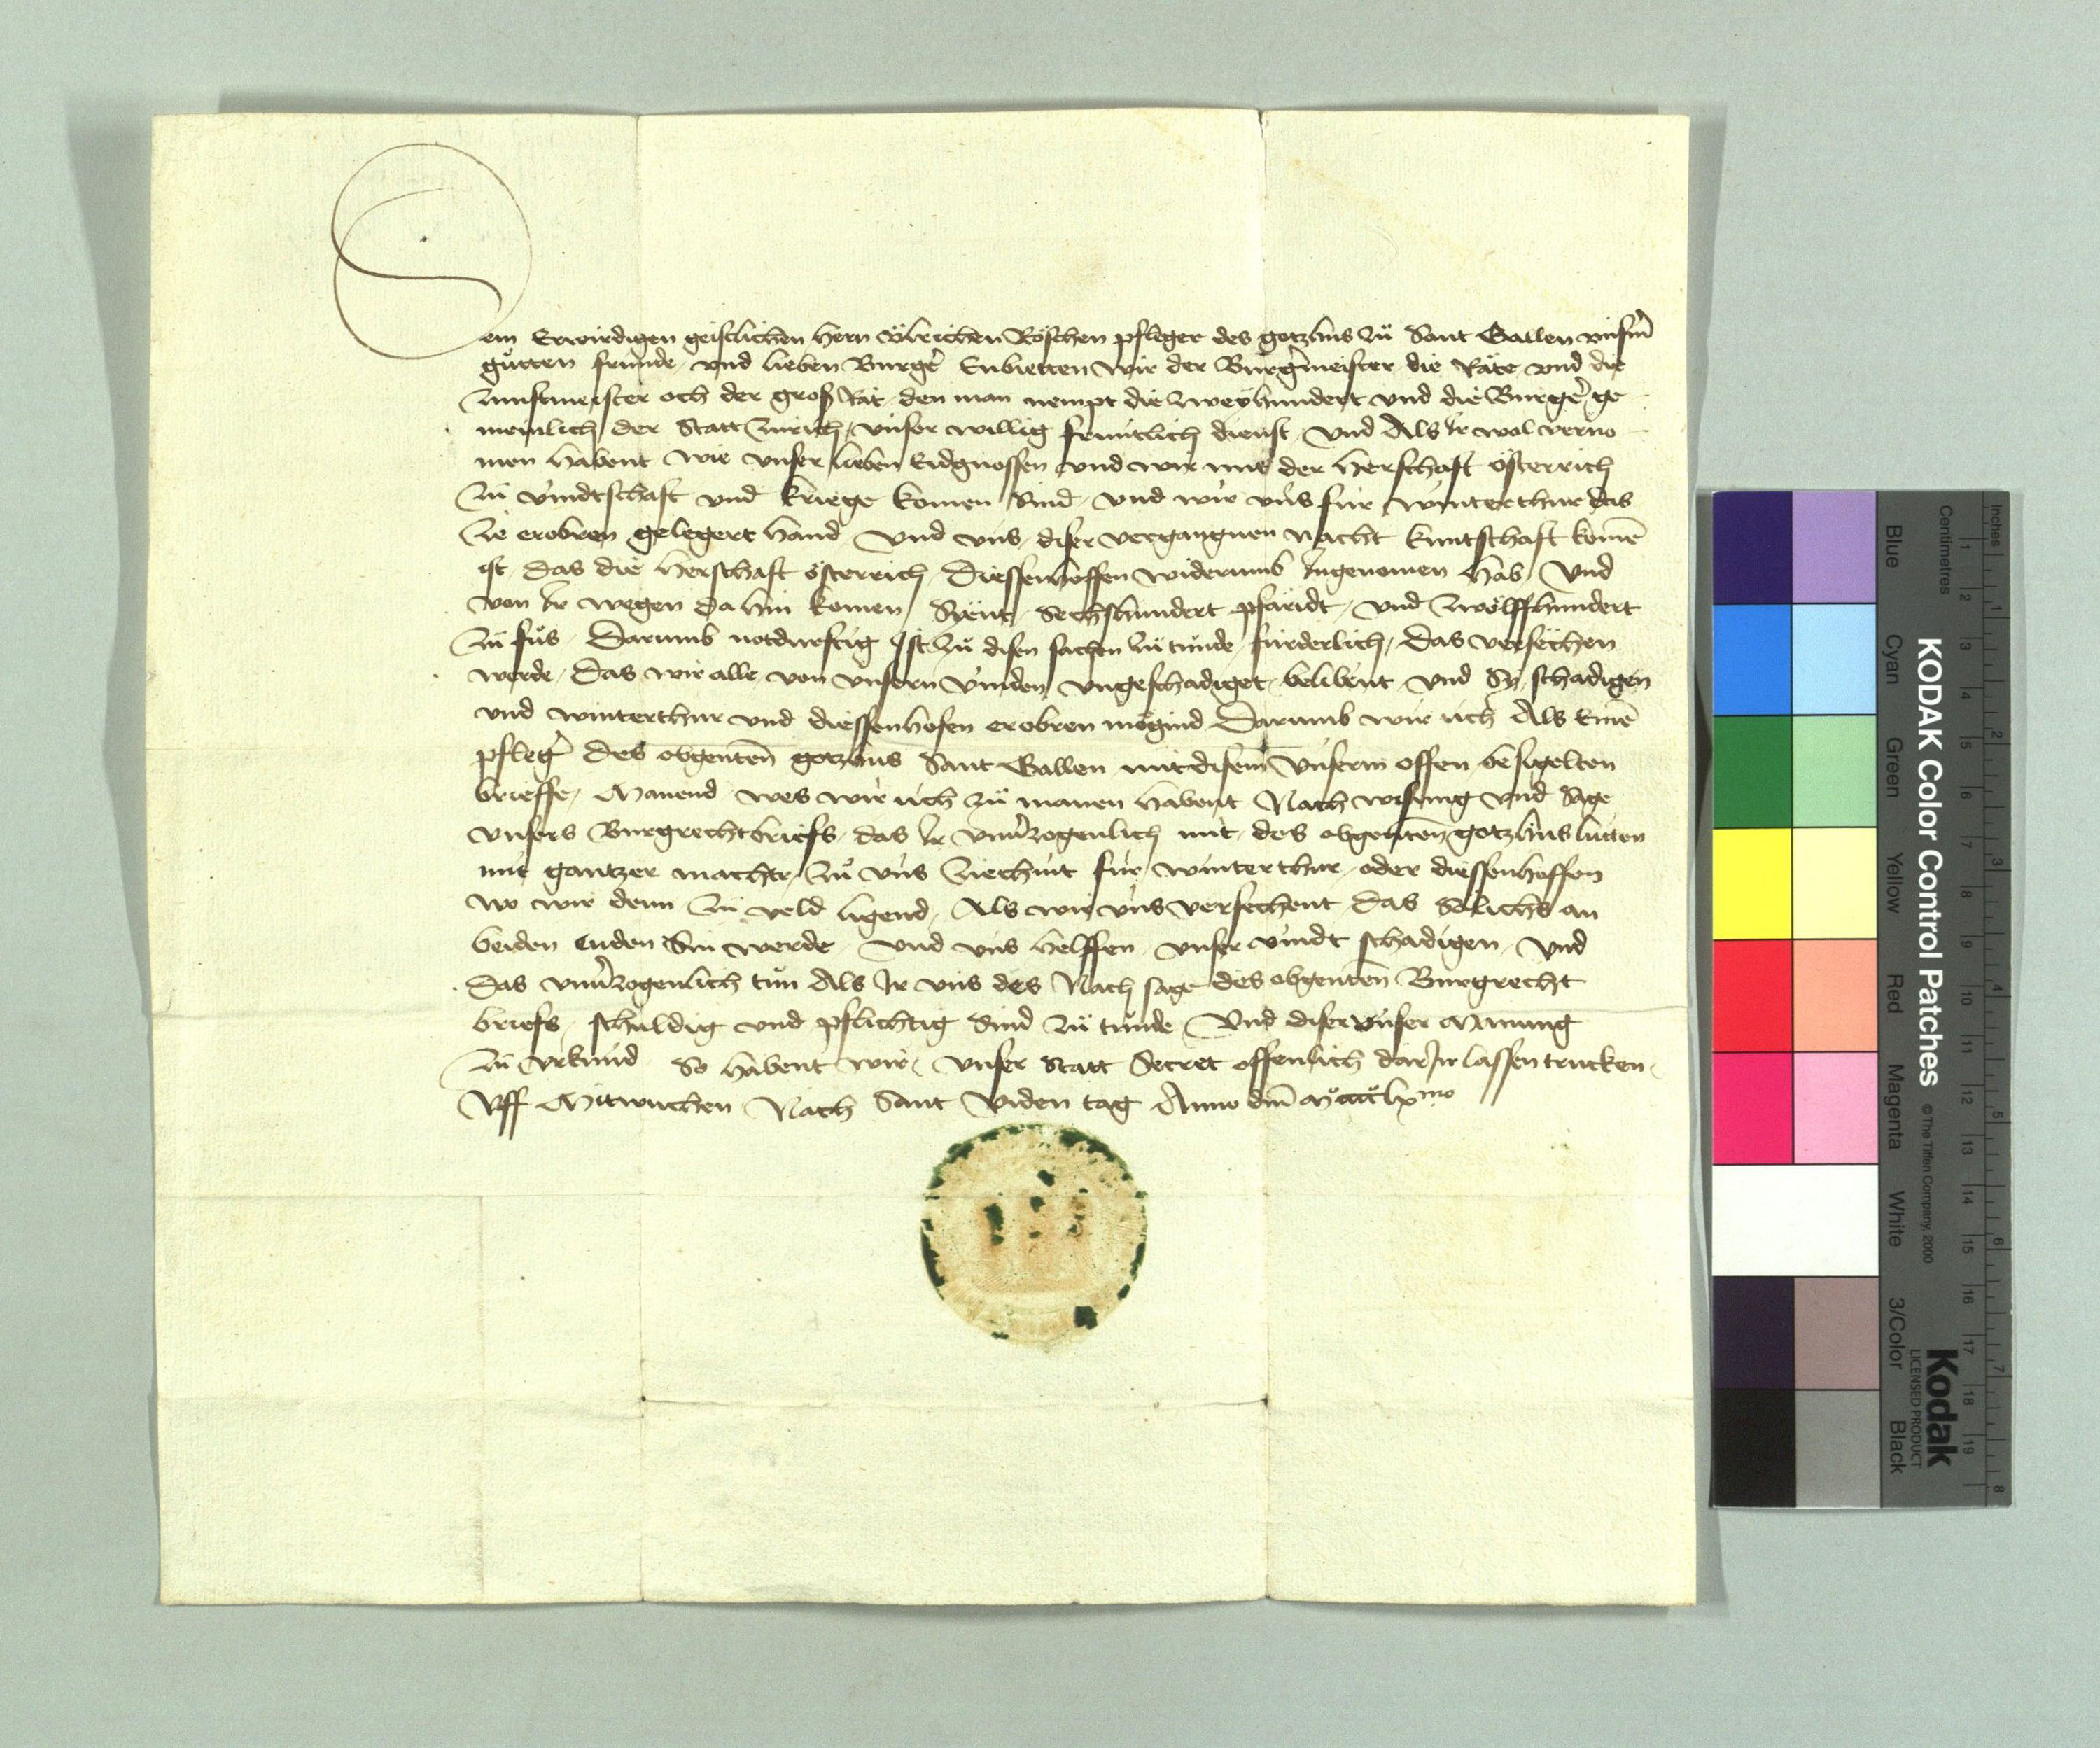 Dem Erwirdigen geistlichen hern Uͦlrichen Röschen pfleger des gotzhus zuͦ Sant Gallen unserm̄
guͦtten fründe und lieben Burgẻr Enbietten wir der Burgermeister die Räte und die
Zunftmeister och der groß Rät den man nempt die zweyhundert und die Burgẻr ge
meinlich der Statt Zürich, unser willig früntlich dienst, und Als Ir wol verno
men habent wie unser lieben Eidgnossen und wir mit der herschaft österrich
zü vindtschaft und kriege komen sind, und wir uns für winterthur das
ze erobren gelegert hand, und uns, diser vergangnen nacht kuntschaft komē
ist, das die herschaft österrich, Diessenhoffen widerumb Ingenomen hab, Und
von Ir wegen da hin komen, Syent, Sechshundert pfäridt, und zwölffhundert
zü fuͦs, Darumb notdurftig Ist, zuͦ disen sachen zü tünde, fürderlich, Das versechen
werde, Das wir alle von unsern vinden, ungeschadiget, belibent, und Sy, schadigen
und winterthur und diessenhofen erobren mögind, Darumb wir üch Als Einē
pflegẻr des obgentēn gotzhus Sant Gallen, mit disem̄ Unserm offen, besigelten
brieffe, Manend, wes wir üch zü manen habent, Nach wisung und Sage
unsers Burgrechtbriefs, das Ir unverzogenlich mit, des obgentēn gotzhus lütten
mit gantzer machte, zuͦ uns ziechint für, winterthur, oder diessenhoffen
wo wir denn zü veld ligend, Als wir uns versechent, Das Sölichs an
beiden enden Sin werde, und uns helffen, unser vindt schadigen, Und
Das unverzogenlich tün Als Ir uns des Nach sage des obgentēn Burgrecht
briefs, schuldig und pflichtig Sind zü tünde, Und diser unser Manung
zü Urkund, So habent wir, unser Statt Secret offenlich dar In lassen trucken,
Uff Mitwuchen Nach Sant Uͦlrichen tag Anno dm̄ Mͦccccͦlxmo
KODAK Color Control Patches © The Tiffen Company, 2000
Kodak
LICENSED PRODUCT
Inches 1 2 3 4 5 6 7 8
Centimetres 1 2 3 4 5 6 7 8 9 10 11 12 13 14 15 16 17 18 19
Blue Cyan Green Yellow Red Magenta White 3/Color Black